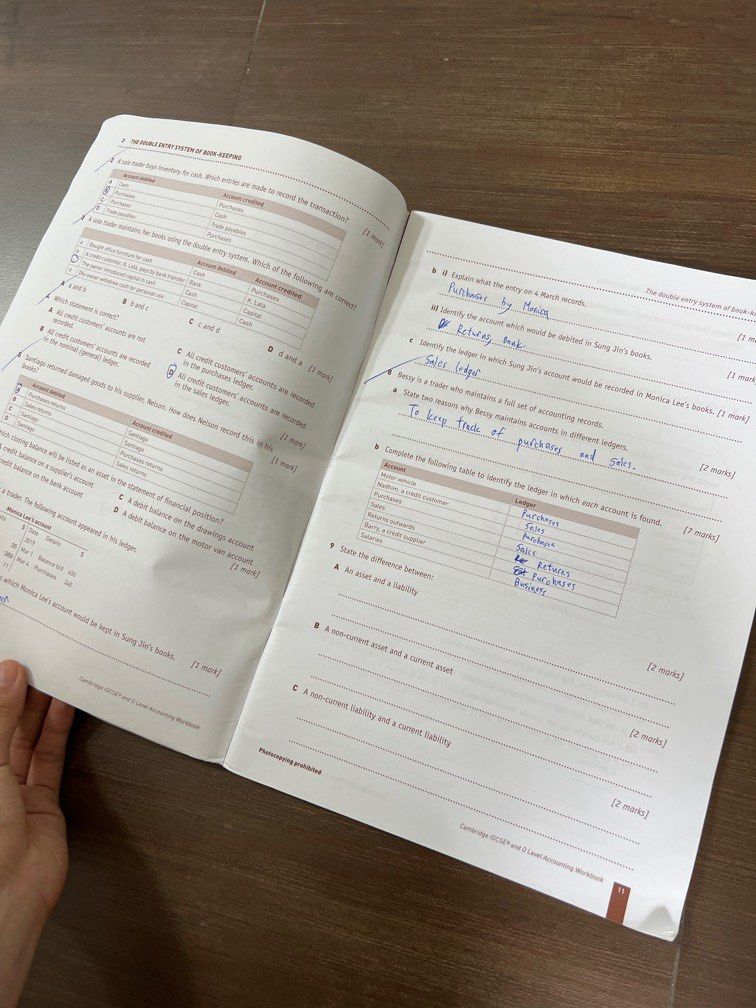 2 THE DOUBLE ENTRY SYSTEM OF BOOK-KEEPING
2 A sole trader buys inventory for cash. Which entries are made to record the transaction?
[1 mark]
Account debited Account credited
A Cash Purchases
B Purchases Cash
C Purchases Trade payables
D Trade payables Purchases
3 A sole trader maintains her books using the double entry system. Which of the following are correct?
Account debited Account credited
a Bought office furniture for cash Cash Purchases
b A credit customer, K. Lala, pays by bank transfer Bank K. Lala
c The owner introduced capital in cash Cash Capital
d The owner withdrew cash for personal use Capital Cash
A a and b
B b and c
C c and d
D d and a [1 mark]
4 Which statement is correct?
A All credit customers' accounts are not
recorded.
B All credit customers' accounts are recorded
in the nominal (general) ledger.
C All credit customers' accounts are recorded
in the purchases ledger.
D All credit customers' accounts are recorded
in the sales ledger.
[1 mark]
Santiago returned damaged goods to his supplier, Nelson. How does Nelson record this in his
books?
[1 mark]
Account debited Account credited
A Purchases returns Santiago
B Sales returns Santiago
C Santiago Purchases returns
D Santiago Sales returns
hich closing balance will be listed as an asset in the statement of financial position?
credit balance on a supplier's account
redit balance on the bank account
C A debit balance on the drawings account
D A debit balance on the motor van account
[1 mark]
a trader. The following account appeared in his ledger.
Monica Lee's account
$ Date Details $
2019
Mar 1 Balance b/d 450
Mar 4 Purchases 360
which Monica Lee's account would be kept in Sung Jin's books.
[1 mark]
Cambridge IGCSE® and O Level Accounting Workbook
The double entry system of book-ke
b i) Explain what the entry on 4 March records.
Purchases by Monica
[1 m
ii) Identify the account which would be debited in Sung Jin's books.
Returns, Bank.
[1 mark
c Identify the ledger in which Sung Jin's account would be recorded in Monica Lee's books. [1 mark]
Sales ledger
8 Bessy is a trader who maintains a full set of accounting records.
a State two reasons why Bessy maintains accounts in different ledgers.
To keep track of purchases and sales.
[2 marks]
b Complete the following table to identify the ledger in which each account is found.
[7 marks]
Account Ledger
Motor vehicle Purchases
Nadhim, a credit customer Sales
Purchases Purchases
Sales Sales
Returns outwards Returns
Barry, a credit supplier Purchases
Salaries Business
9 State the difference between:
A An asset and a liability
[2 marks]
B A non-current asset and a current asset
[2 marks]
C A non-current liability and a current liability
[2 marks]
Photocopying prohibited
Cambridge IGCSE® and O Level Accounting Workbook
11